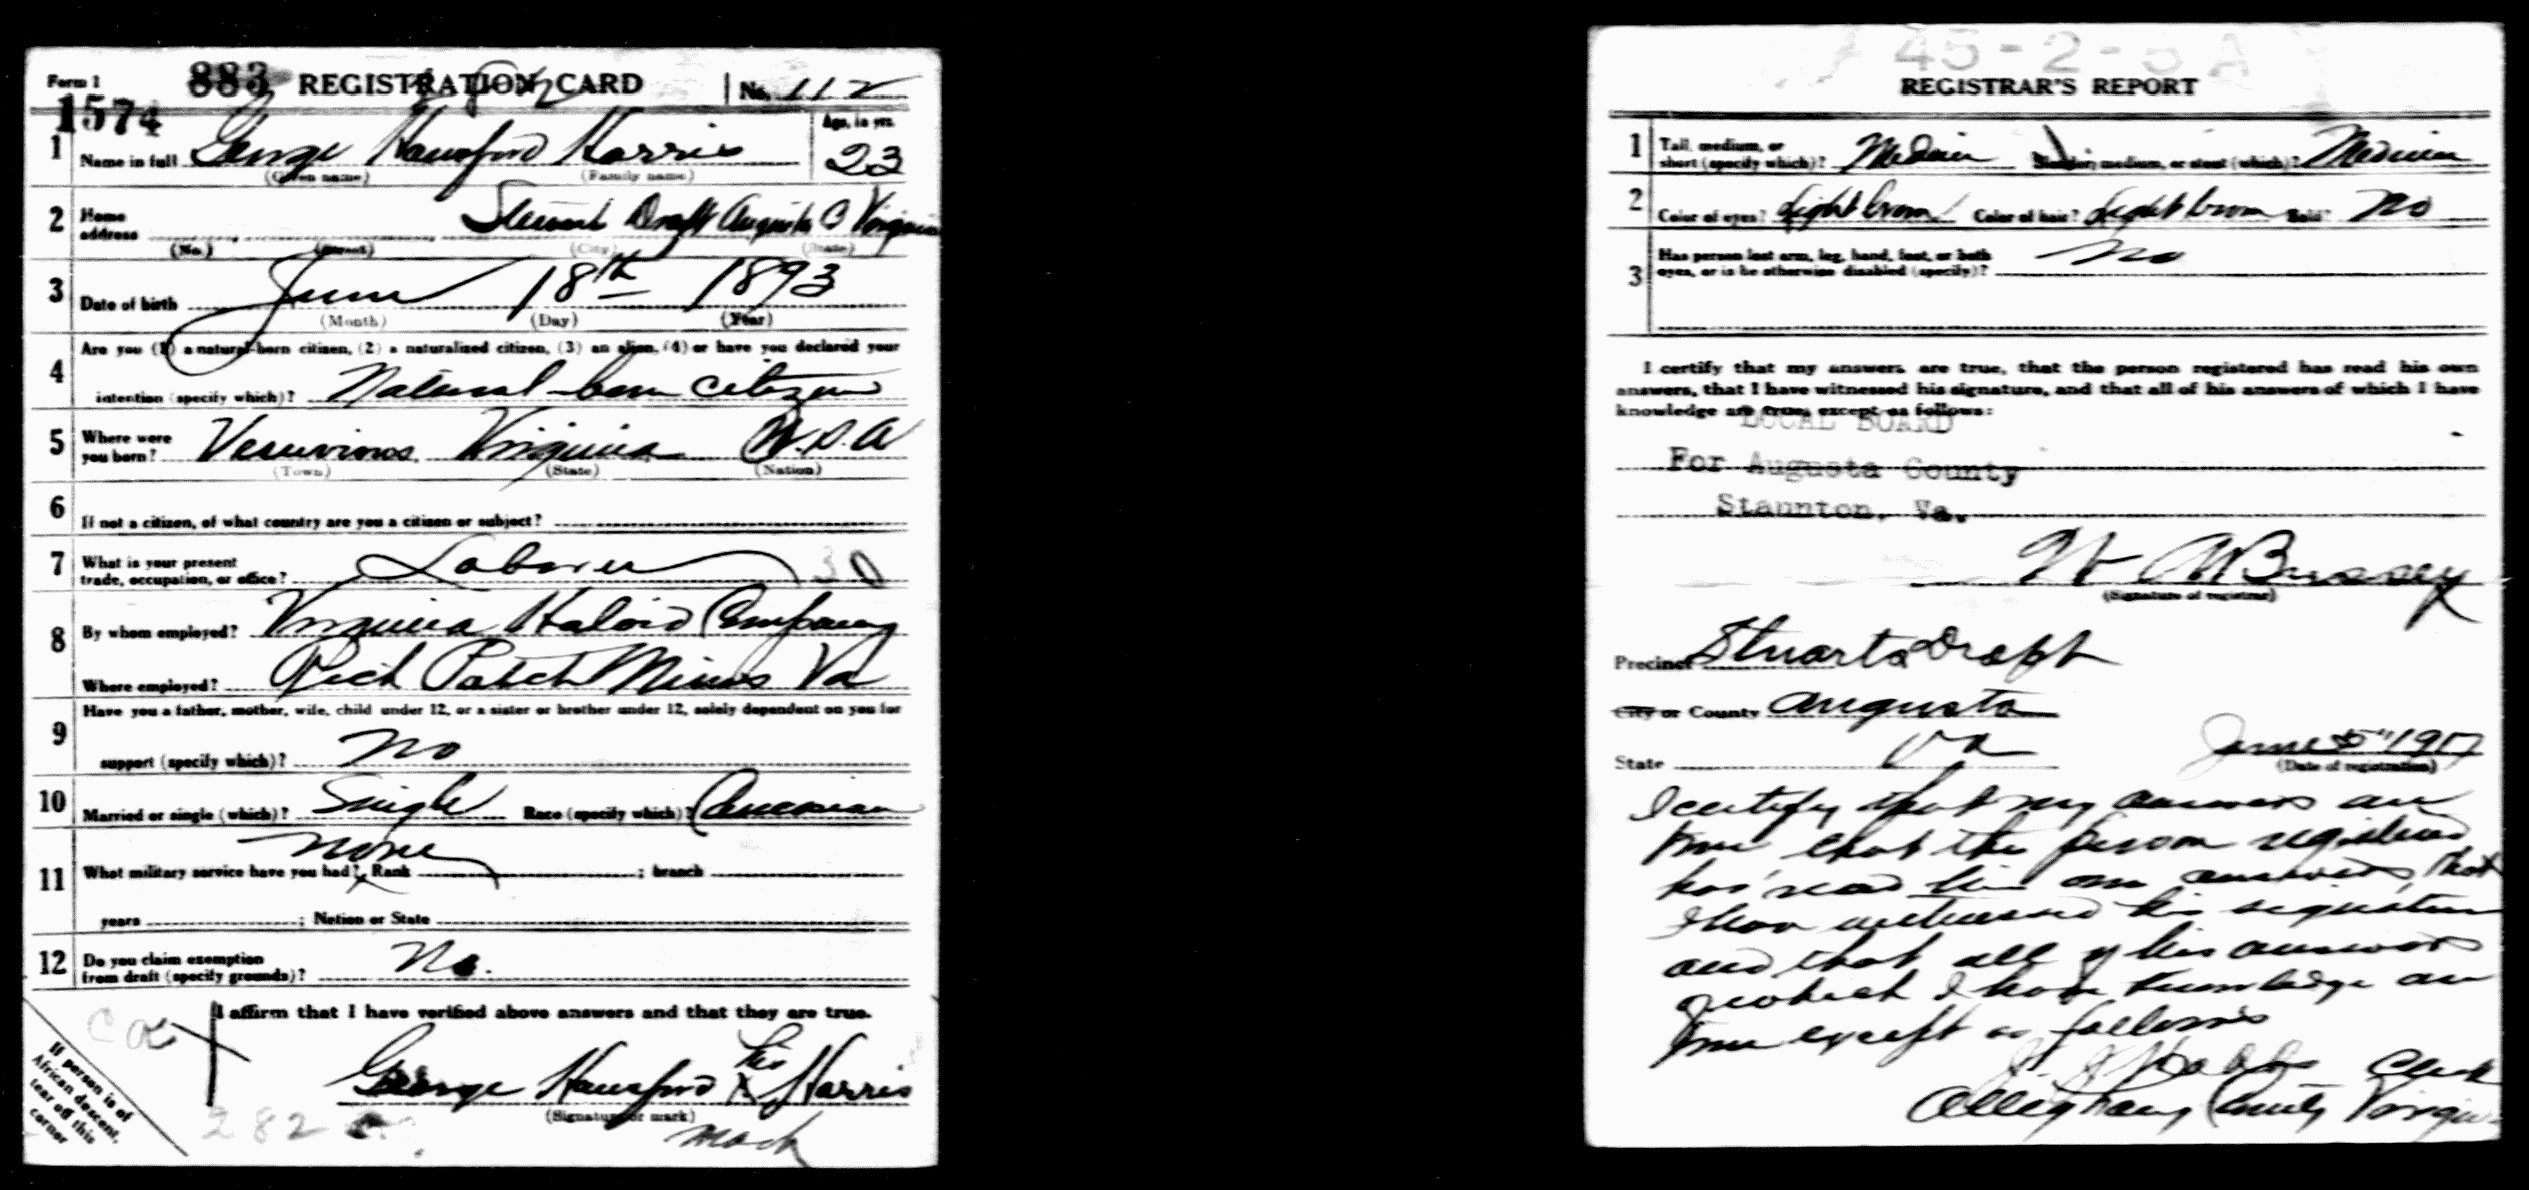 Form 1 883 REGISTRATION CARD No. 112
1574
1 Name in full George Hansford Harris Age, in yrs. 23
(Given name) (Family name)
2 Home address Steuart Draft Augusta C Virginia
(No.) (Street) (City) (State)
3 Date of birth June 18th 1893
(Month) (Day) (Year)
4 Are you (1) a natural-born citizen, (2) a naturalized citizen, (3) an alien, (4) or have you declared your
intention (specify which)? Natural-born citizen
5 Where were you born? Vesuvious, Virginia U.S.A
(Town) (State) (Nation)
6 If not a citizen, of what country are you a citizen or subject?
7 What is your present trade, occupation, or office? Laborer 30
8 By whom employed? Virginia Haloid Company
Where employed? Rich Patch Mines Va
9 Have you a father, mother, wife, child under 12, or a sister or brother under 12, solely dependent on you for
support (specify which)? No
10 Married or single (which)? Single Race (specify which)? Caucasian
11 What military service have you had? Rank None ; branch
years ; Nation or State
12 Do you claim exemption from draft (specify grounds)? No.
I affirm that I have verified above answers and that they are true.
George Hansford his X Harris
(Signature or mark)
mark
If person is of
African descent,
tear off this
corner
282
45-2-5 A
REGISTRAR'S REPORT
1 Tall, medium, or short (specify which)? Medium Slender, medium, or stout (which)? Medium
2 Color of eyes? Light brown Color of hair? Light brown Bald? No
3 Has person lost arm, leg, hand, foot, or both
eyes, or is he otherwise disabled (specify)? No
I certify that my answers are true, that the person registered has read his own
answers, that I have witnessed his signature, and that all of his answers of which I have
knowledge are true, except as follows:
LOCAL BOARD
For Augusta County
Staunton, Va.
Bussey
(Signature of registrar)
Precinct Stuarts Draft
City or County Augusta
State Va June 5" 1917
(Date of registration)
I certify that my answers are
true that the person registered
has read his own answers, that
I have witnessed his signature
and that all of his answers
of which I have knowledge are
true except as follows
Clerk
Alleghany County Virginia